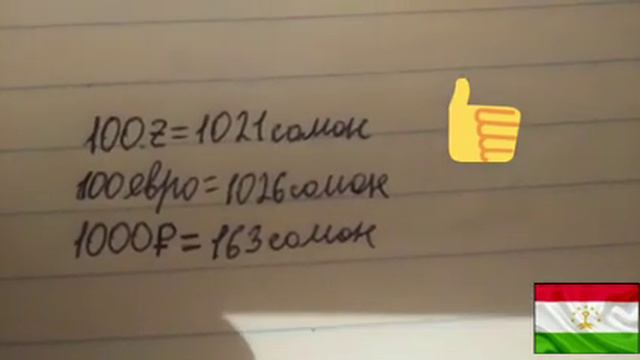 100.z=1021сомон
100евро=1026сомон
1000₽=163сомон